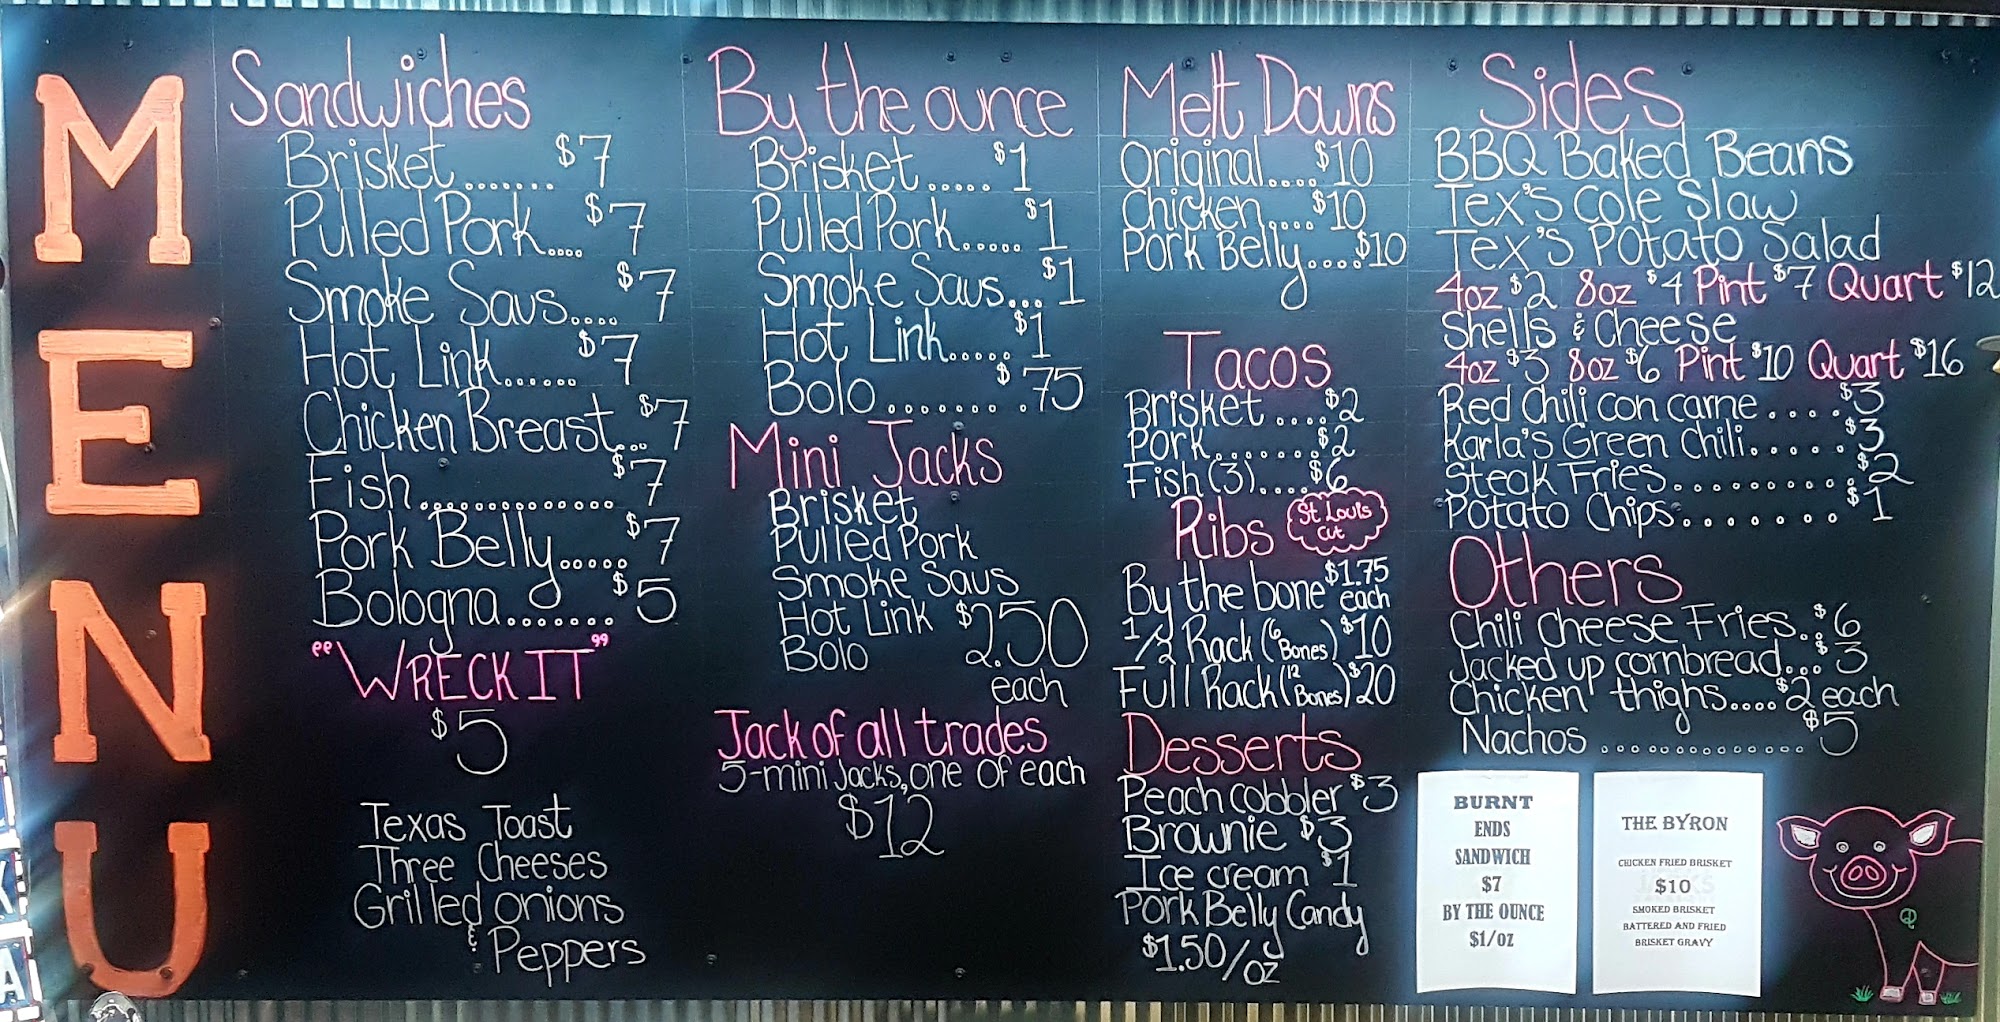 MENU
Sandwiches
Brisket....... $7
Pulled Pork.... $7
Smoke Saus.... $7
Hot Link...... $7
Chicken Breast... $7
Fish............. $7
Pork Belly..... $7
Bologna....... $5
"WRECK IT"
$5
Texas Toast
Three Cheeses
Grilled onions
& Peppers
By the ounce
Brisket..... $1
Pulled Pork..... $1
Smoke Saus... $1
Hot Link..... $1
Bolo....... $.75
Mini Jacks
Brisket
Pulled Pork
Smoke Saus
Hot Link $2.50
Bolo
each
Jack of all trades
5-mini Jacks, one of each
$12
Melt Downs
Original.... $10
Chicken.... $10
Pork Belly.... $10
Tacos
Brisket.... $2
Pork....... $2
Fish (3).... $6
Ribs St Louis cut
By the bone $1.75 each
1/2 Rack (6 Bones) $10
Full Rack (12 Bones) $20
Desserts
Peach cobbler $3
Brownie $3
Ice cream $1
Pork Belly Candy
$1.50/oz
Sides
BBQ Baked Beans
Tex's Cole Slaw
Tex's Potato Salad
4oz $2 8oz $4 Pint $7 Quart $12
Shells & Cheese
4oz $3 8oz $6 Pint $10 Quart $16
Red chili con carne.... $3
Karla's Green Chili...... $3
Steak Fries.......... $2
Potato Chips....... $1
Others
Chili cheese Fries.. $6
Jacked up cornbread... $3
Chicken thighs.... $2 each
Nachos ............. $5
BURNT
ENDS
SANDWICH
$7
BY THE OUNCE
$1/OZ
THE BYRON
CHICKEN FRIED BRISKET
$10
SMOKED BRISKET
BATTERED AND FRIED
BRISKET GRAVY